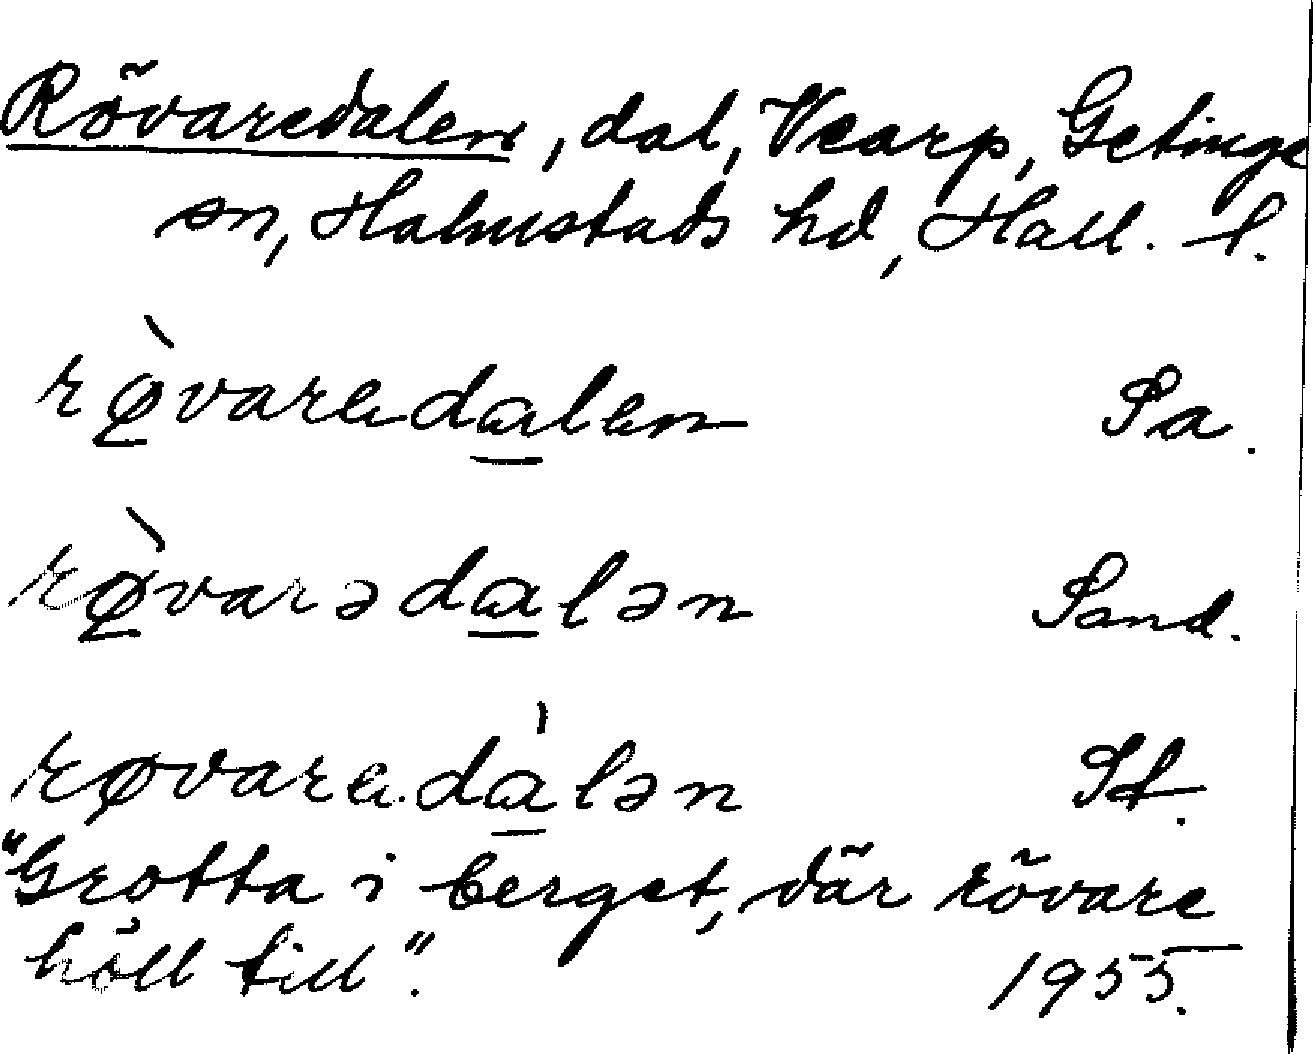 Rövaredalen, dal, Vearp, Getinge
sn, Halmstads hd, Hall. l.
rø̱̀vareda̱len Sa.
rø̱̀varəda̱lən Sand.
røvaredà̱lən St.
"Grotta i berget, där rövare
höll till".
1955.